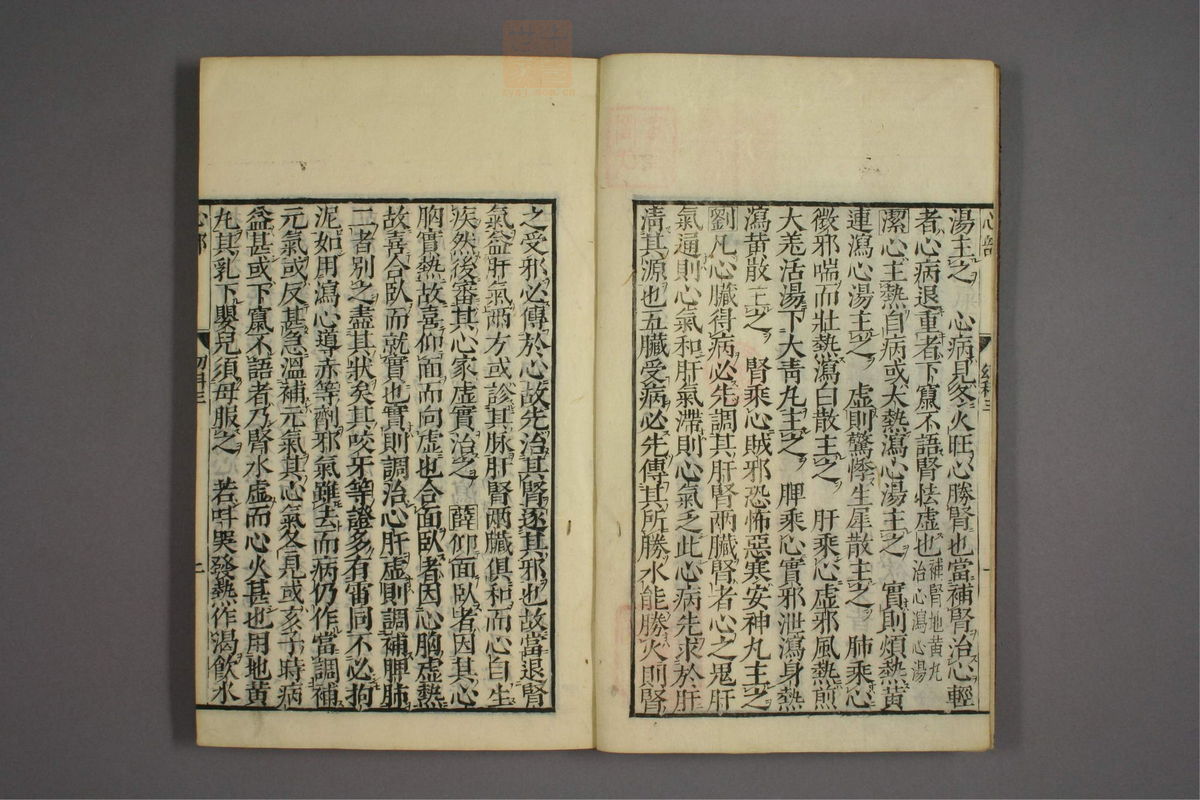 湯主之　心病見冬火旺心勝腎也當補腎治心輕
者心病退重者下竄不語腎怯虛也補腎地黄丸治心瀉心湯
潔心主熱自病或大熱瀉心湯主之　實則煩熱黄
連瀉心湯主之　虛則驚悸生犀散主之　肺乘心
微邪喘而壯熱瀉白散主之　肝乘心虛邪風熱煎
大羌活湯下大青丸主之　脾乘心實邪泄瀉身熱
瀉黄散主之　腎乘心賊邪恐怖惡寒安神丸主之
劉凡心臟得病必先調其肝腎兩臟腎者心之鬼肝
氣通則心氣和肝氣滯則心氣乏此心病先求於肝
清其源也五臟受病必先傳其所勝水能勝火則腎
心部
幼科三
一
之受邪必傳於心故先治其腎逐其邪也故當退腎
氣益肝氣兩方或診其脉肝腎兩臟俱和而心自生
疾然後審其心家虛實治之　薛仰面臥者因其心
胸實熱故喜仰面而向虛也合面臥者因心胸虛熱
故喜合臥而就實也實則調治心肝虛則調補脾肺
二者別之盡其狀矣其咬牙等證多有雷同不必拘
泥如用瀉心導赤等劑邪氣雖去而病仍作當調補
元氣或反甚急溫補元氣其心氣冬見或亥子時病
益甚或下竄不語者乃腎水虛而心火甚也用地黄
丸其乳下嬰兒須母服之　若叫哭發熱作渴飲水
心部
幼科三
二